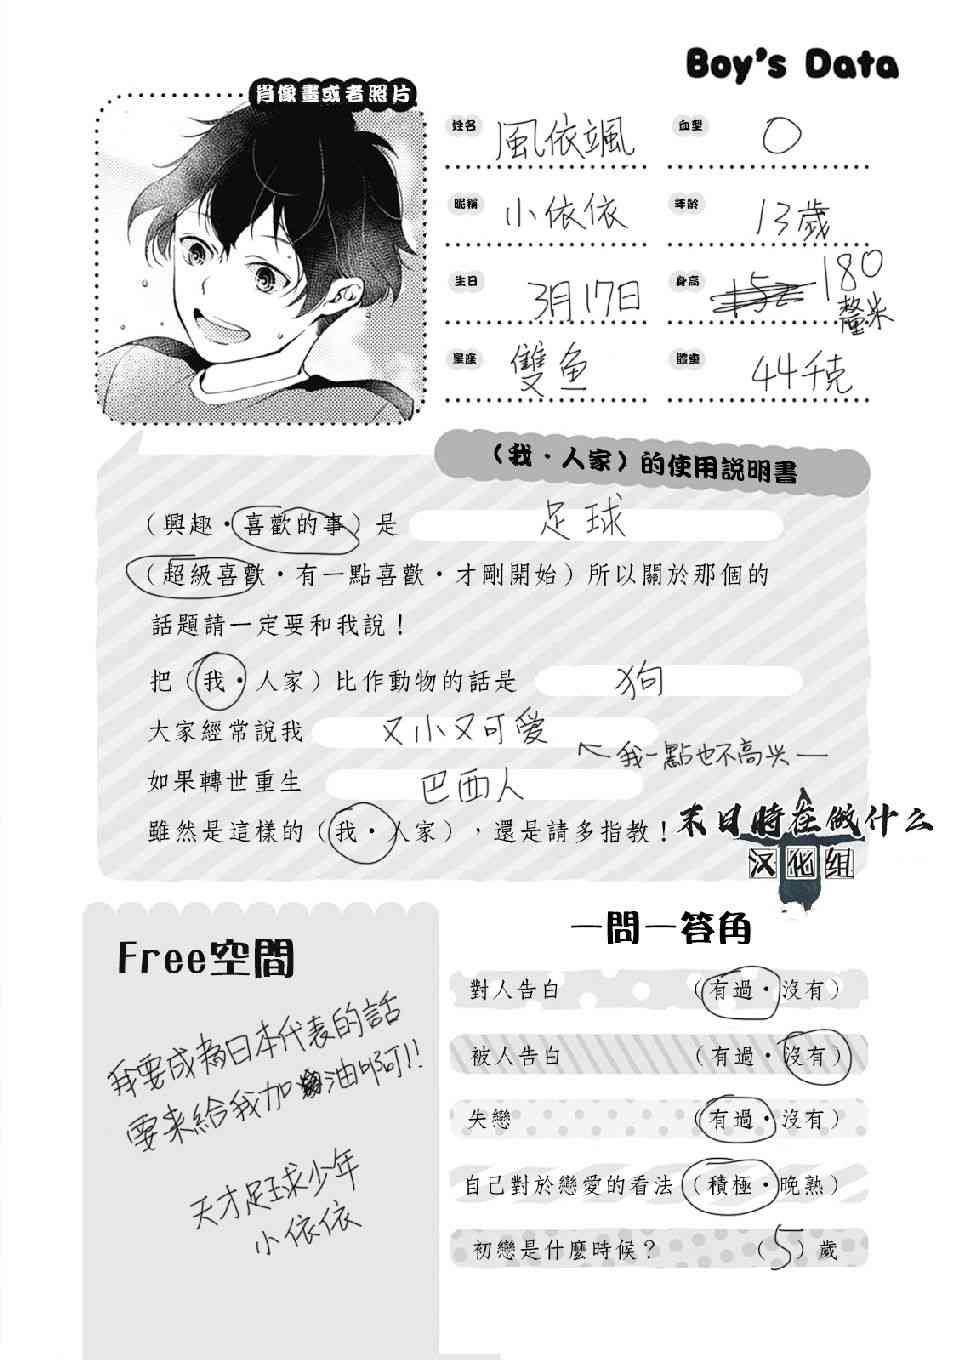 Boy's Data
肖像畫或者照片
姓名 風依颯
血型 O
昵稱 小依依
年齡 13歲
生日 3月17日
身高 152 180釐米
星座 雙魚
體重 44千克
（我・人家）的使用説明書
（興趣・喜歡的事）是 足球
（超級喜歡・有一點喜歡・才剛開始）所以關於那個的
話題請一定要和我說！
把（我・人家）比作動物的話是 狗
大家經常說我 又小又可愛
←我一點也不高兴—
如果轉世重生 巴西人
雖然是這樣的（我・人家），還是請多指教！
末日時在做什么
汉化组
Free空間
我要成為日本代表的話
要来給我加油啊!!
天才足球少年
小依依
一問一答角
對人告白 （有過・沒有）
被人告白 （有過・沒有）
失戀 （有過・沒有）
自己對於戀愛的看法（積極・晚熟）
初戀是什麼時候？ （5）歲